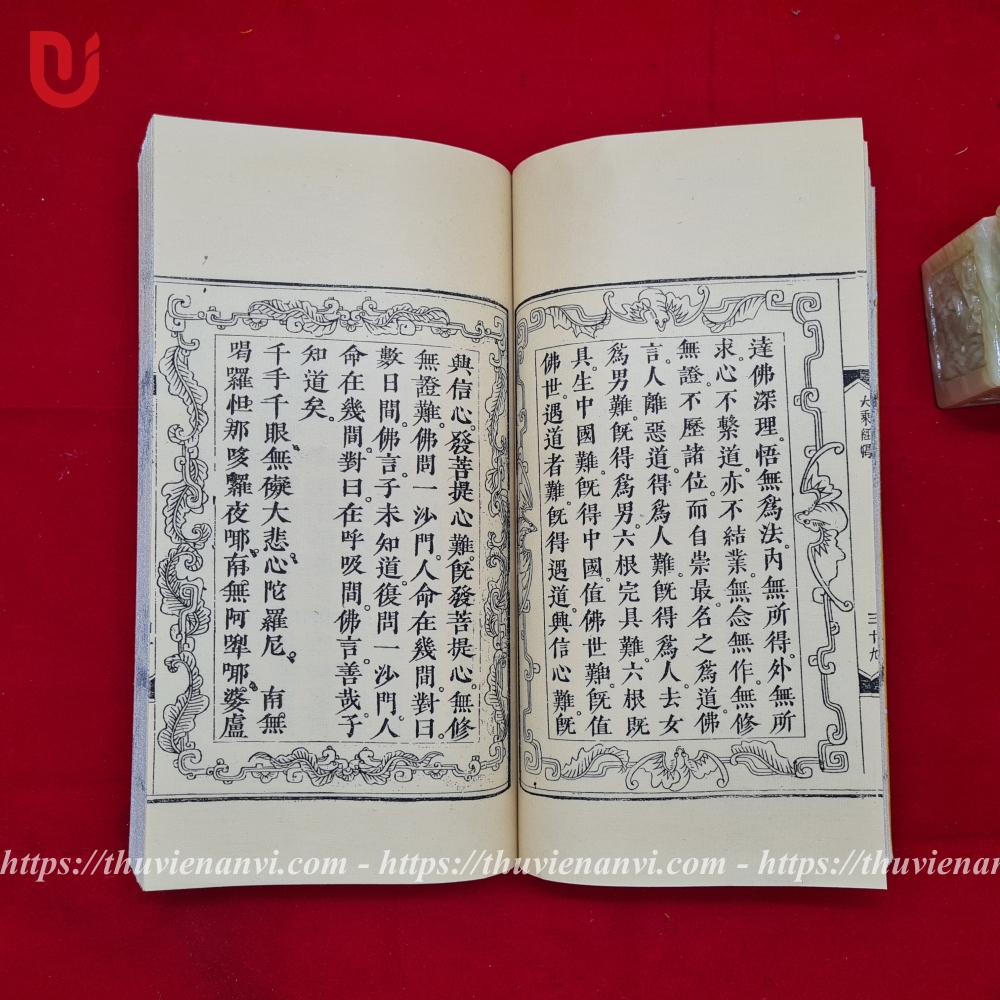 大乘經偈
三十九
達佛深理。悟無爲法。內無所得。外無所
求。心不繫道。亦不結業。無念無作。無修
無證。不歷諸位。而自崇最。名之爲道。佛
言。人離惡道得爲人難。旣得爲人。去女
爲男難。旣得爲男。六根完具難。六根既
具。生中國難。旣得中國。值佛世難。旣值
佛世。遇道者難。旣得遇道。興信心難。旣
興信心。發菩提心難。旣發菩提心。無修
無證難。佛問一沙門。人命在幾間。對曰。
數日間。佛言。子未知道。復問一沙門。人
命在幾間。對曰。在呼吸間。佛言善哉。子
知道矣。
千手千眼。無礙大悲心陀羅尼。 南無
喝羅怛那哆囉夜㖿。南無阿㖿。婆盧
https://thuvienanvi.com - https://thuvienanvi.com - https://thuvienan